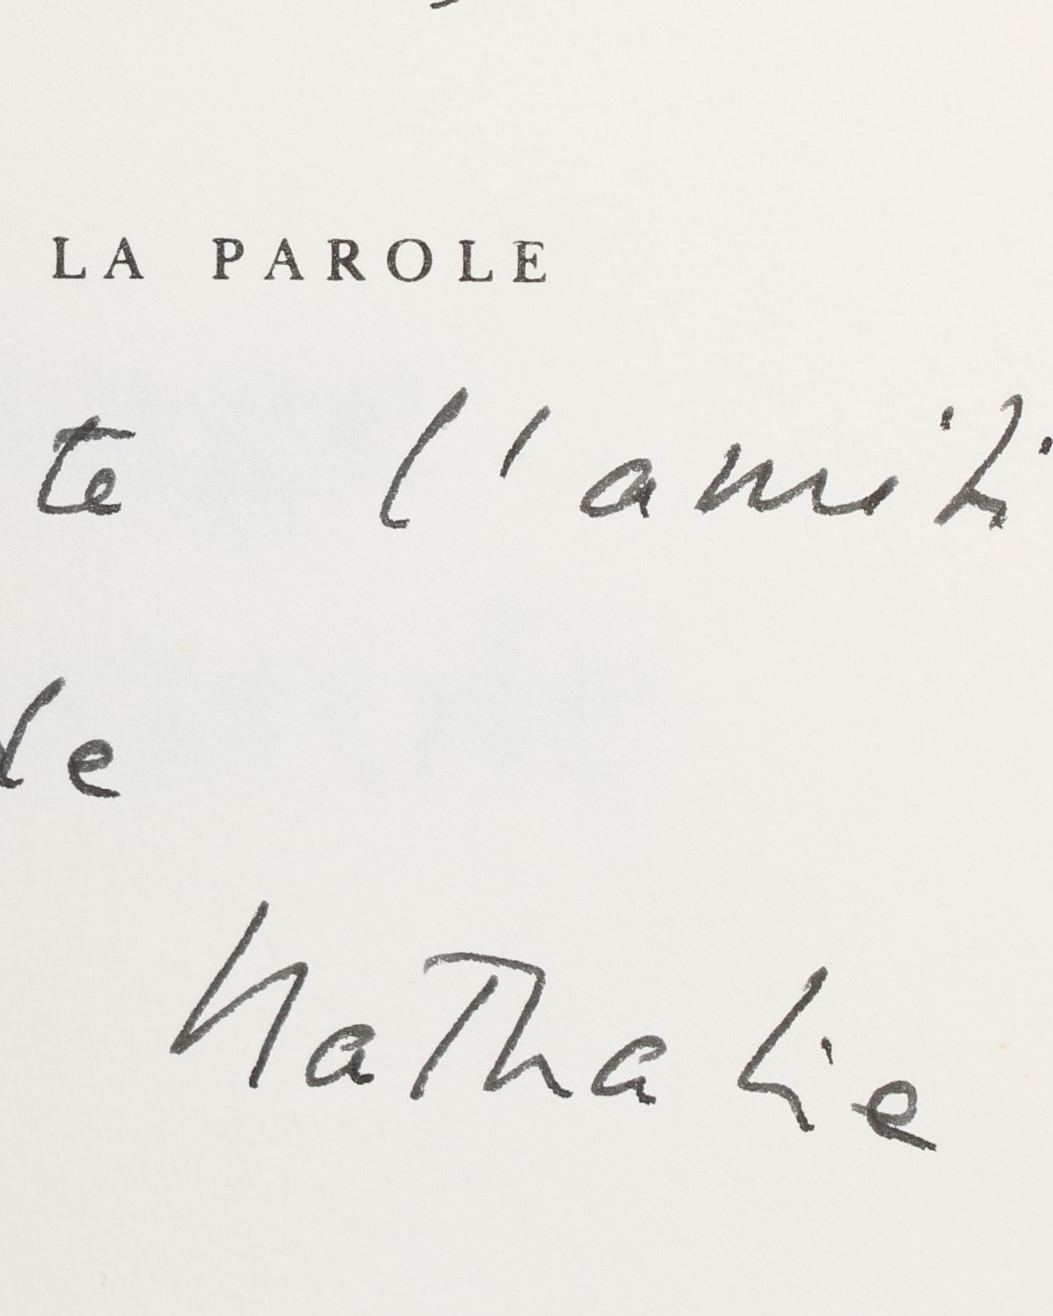 LA PAROLE
te l'amiti
de
Nathalie